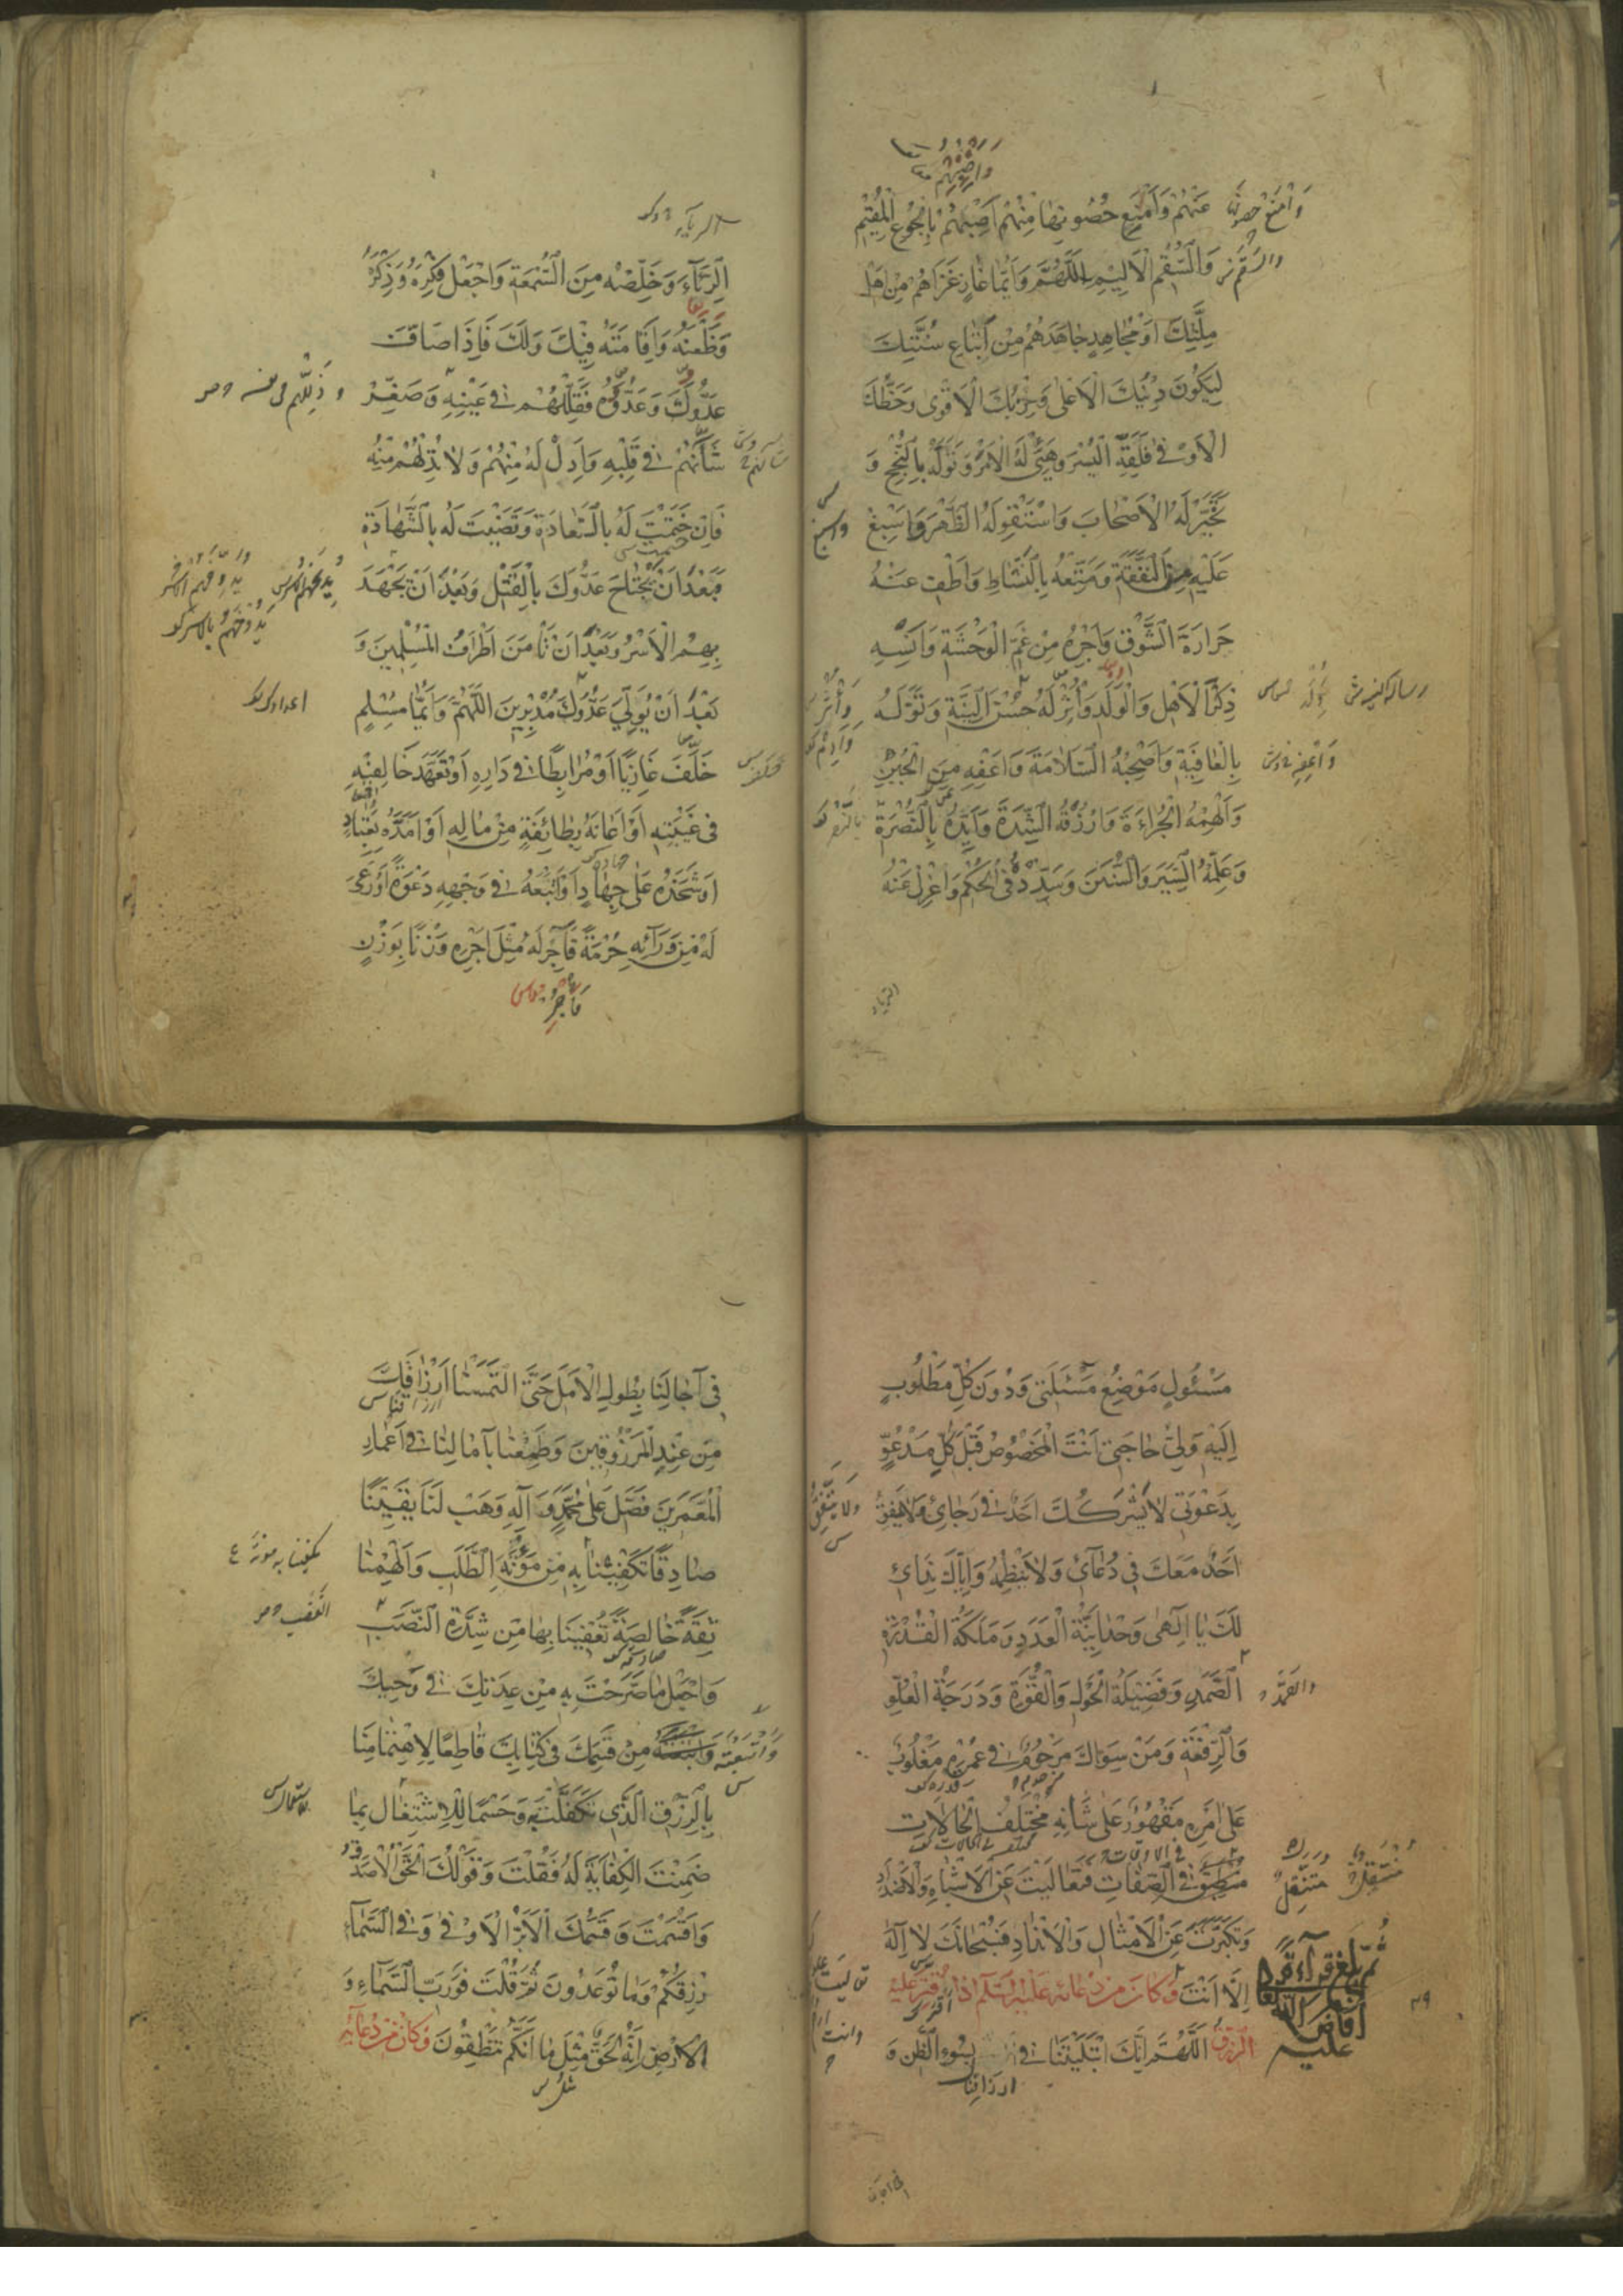 وَارْضِهِمْ
وَامْنَعْ حصونها
عَنْهُمْ وَأَمْنَعِ حُصُونِهَا مِنْهُمْ أَصِبْهُمْ بِالْجُوعِ الْمُقِيمِ
وَالسُّقْمِ الْأَلِيمِ اللَّهُمَّ وَأَيُّمَا غَازٍ غَزَاهُمْ مِنْ أَهْلِ
مِلَّتِكَ أَوْ مُجَاهِدٍ جَاهَدَهُمْ مِنْ أَتْبَاعِ سُنَّتِكَ
لِيَكُونَ دِينُكَ الْأَعْلَى وَحِزْبُكَ الْأَقْوَى وَحَظُّكَ
الْأَوْفَى فَلَقِّهِ الْيُسْرَ وَهَيِّئْ لَهُ الْأَمْرَ وَتَوَلَّهُ بِالنُّجْحِ وَ
تَخَيَّرْ لَهُ الْأَصْحَابَ وَاسْتَقْوِ لَهُ الظَّهْرَ وَأَسْبِغْ
عَلَيْهِ فِي النَّفَقَةِ وَمَتِّعْهُ بِالنَّشَاطِ وَأَطْفِ عَنْهُ
حَرَارَةَ الشَّوْقِ وَأَجِرْهُ مِنْ غَمِّ الْوَحْشَةِ وَأَنْسِهِ
ذِكْرَ الْأَهْلِ وَالْوَلَدِ وَأْثُرْ لَهُ حُسْنَ النِّيَّةِ وَتَوَلَّهُ
بِالْعَافِيَةِ وَأَصْحِبْهُ السَّلَامَةَ وَأَعْفِهِ مِنَ الْجُبْنِ
وَأَلْهِمْهُ الْجُرْأَةَ وَارْزُقْهُ الشِّدَّةَ وَأَيِّدْهُ بِالنُّصْرَةِ
وَعَلِّمْهُ السِّيَرَ وَالسُّنَنَ وَسَدِّدْهُ فِي الْحُكْمِ وَاعْزِلْ عَنْهُ
الرياء
الرِّيَاءَ وَخَلِّصْهُ مِنَ السُّمْعَةِ وَاجْعَلْ فِكْرَهُ وَذِكْرَهُ
وَظَعْنَهُ وَإِقَامَتَهُ فِيكَ وَلَكَ فَإِذَا صَافَّ
عَدُوَّكَ وَعَدُوَّهُ فَقَلِّلْهُمْ فِي عَيْنِهِ وَصَغِّرْ
شَأْنَهُمْ فِي قَلْبِهِ وَأَدِلْ لَهُ مِنْهُمْ وَلَا تُدِلْهُمْ مِنْهُ
فَإِنْ خَتَمْتَ لَهُ بِالسَّعَادَةِ وَقَضَيْتَ لَهُ بِالشَّهَادَةِ
فَبَعْدَ أَنْ يَجْتَاحَ عَدُوَّكَ بِالْقَتْلِ وَبَعْدَ أَنْ يَجْهَدَ
بِهِمُ الْأَسْرُ وَبَعْدَ أَنْ تَأْمَنَ أَطْرَافُ الْمُسْلِمِينَ وَ
بَعْدَ أَنْ يُوَلِّيَ عَدُوُّكَ مُدْبِرِينَ اللَّهُمَّ وَأَيُّمَا مُسْلِمٍ
خَلَفَ غَازِيًا أَوْ مُرَابِطًا فِي دَارِهِ أَوْ تَعَهَّدَ خَالِفِيهِ
فِي غَيْبَتِهِ أَوْ أَعَانَهُ بِطَائِفَةٍ مِنْ مَالِهِ أَوْ أَمَدَّهُ بِعِتَادٍ
أَوْ شَحَذَهُ عَلَى جِهَادٍ أَوْ أَتْبَعَهُ فِي وَجْهِهِ دَعْوَةً أَوْ رَعَى
لَهُ مِنْ وَرَائِهِ حُرْمَةً فَآجِرْ لَهُ مِثْلَ أَجْرِهِ وَزْنًا بِوَزْنٍ
مَسْئُولٍ مَوْضِعُ مَسْئَلَتِي وَدُونَ كُلِّ مَطْلُوبٍ
إِلَيْهِ وَلِيُّ حَاجَتِي أَنْتَ الْمَخْصُوصُ قَبْلَ كُلِّ مَدْعُوٍّ
بِدَعْوَتِي لَا يَشْرَكُكَ أَحَدٌ فِي رَجَائِي وَلَا يَتَّفِقُ
أَحَدٌ مَعَكَ فِي دُعَائِي وَلَا يَنْظِمُهُ وَإِيَّاكَ نِدَائِي
لَكَ يَا إِلَهِي وَحْدَانِيَّةُ الْعَدَدِ وَمَلَكَةُ الْقُدْرَةِ
الصَّمَدِ وَفَضِيلَةُ الْحَوْلِ وَالْقُوَّةِ وَدَرَجَةُ الْعُلُوِّ
وَالرِّفْعَةِ وَمَنْ سِوَاكَ مَرْحُومٌ فِي عُمْرِهِ مَغْلُوبٌ
عَلَى أَمْرِهِ مَقْهُورٌ عَلَى شَأْنِهِ مُخْتَلِفُ الْحَالَاتِ
فِي الصِّفَاتِ فَتَعَالَيْتَ عَنِ الْأَشْبَاهِ وَالْأَضْدَادِ
وَتَكَبَّرْتَ عَنِ الْأَمْثَالِ وَالْأَنْدَادِ فَسُبْحَانَكَ لَا إِلَهَ
إِلَّا أَنْتَ وَكَانَ مِنْ دُعَائِهِ عَلَيْهِ السَّلَامُ إِذَا قُتِّرَ عَلَيْهِ
الرِّزْقُ اللَّهُمَّ إِنَّكَ ابْتَلَيْتَنَا فِي بِسُوءِ الظَّنِّ وَ
ارزاقنا
ثم بلغ قراءة
عليه
٣٩
فِي آجَالِنَا بِطُولِ الْأَمَلِ حَتَّى الْتَمَسْنَا أَرْزَاقَكَ
مِنْ عِنْدِ الْمَرْزُوقِينَ وَطَمِعْنَا بِآمَالِنَا فِي أَعْمَارِ
الْمُعَمَّرِينَ فَصَلِّ عَلَى مُحَمَّدٍ وَآلِهِ وَهَبْ لَنَا يَقِينًا
صَادِقًا تَكْفِينَا بِهِ مِنْ مَؤُنَةِ الطَّلَبِ وَأَلْهِمْنَا
ثِقَةً خَالِصَةً تُعْفِينَا بِهَا مِنْ شِدَّةِ النَّصَبِ
وَاجْعَلْ مَا صَرَّحْتَ بِهِ مِنْ عِدَتِكَ فِي وَحْيِكَ
وَأَتْبَعْتَهُ مِنْ قَسَمِكَ فِي كِتَابِكَ قَاطِعًا لِاهْتِمَامِنَا
بِالرِّزْقِ الَّذِي تَكَفَّلْتَ بِهِ وَحَسْمًا لِلِاشْتِغَالِ بِمَا
ضَمِنْتَ الْكِفَايَةَ لَهُ فَقُلْتَ وَقَوْلُكَ الْحَقُّ الْأَصْدَقُ
وَأَقْسَمْتَ وَقَسَمُكَ الْأَبَرُّ الْأَوْفَى وَفِي السَّمَاءِ
رِزْقُكُمْ وَمَا تُوعَدُونَ ثُمَّ قُلْتَ فَوَرَبِّ السَّمَاءِ وَ
الْأَرْضِ إِنَّهُ لَحَقٌّ مِثْلَ مَا أَنَّكُمْ تَنْطِقُونَ وَكَانَ مِنْ دُعَائِهِ